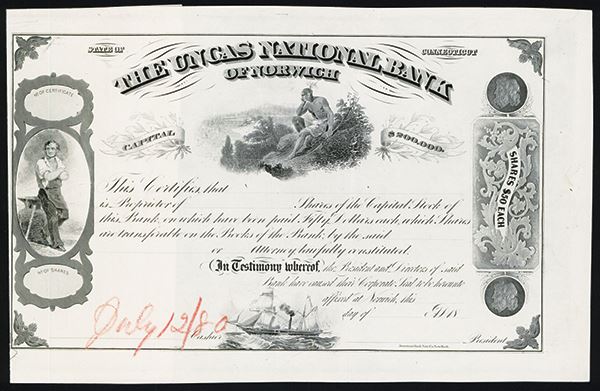 STATE OF
CONNECTICUT
THE UNCAS NATIONAL BANK
OF NORWICH
No OF CERTIFICATE
CAPITAL
$200,000.
This Certifies that
is Proprietor of Shares of the Capital Stock of
this Bank, on which have been paid Fifty Dollars each, which Shares
are transferable on the Books of the Bank, by the said
or Attorney lawfully constituted.
SHARES $50 EACH
No OF SHARES
In Testimony whereof, the President and Directors of said
Bank have caused their Corporate Seal to be hereunto
affixed at Norwich, this
day of A.D. 18
July 12/80
Cashier
President